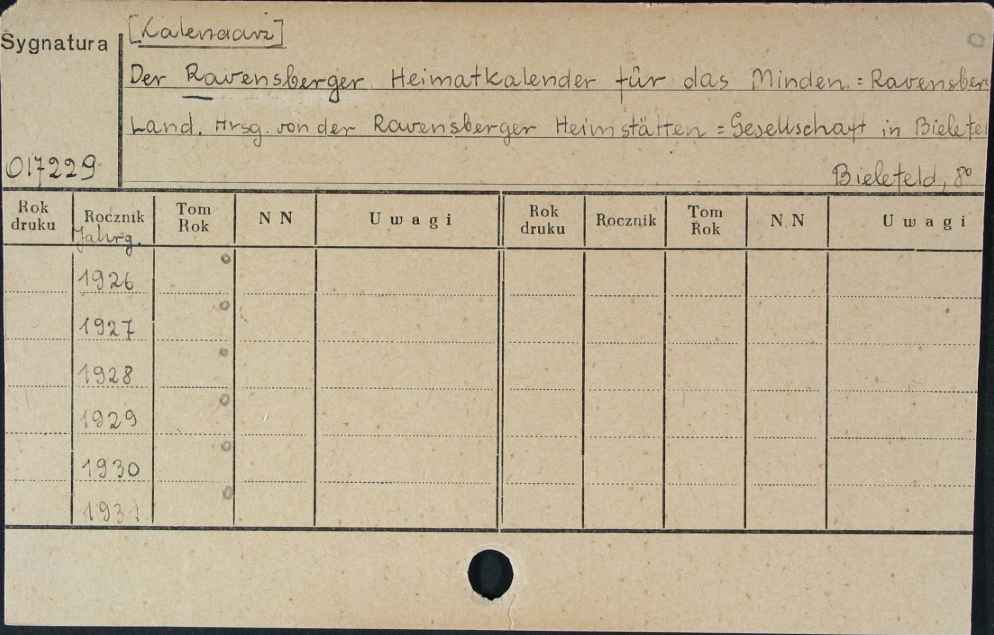 [Kalendarz]
Sygnatura
Der Ravensberger Heimatkalender für das Minden=Ravensber
Land. Hrsg. von der Ravensberger Heimstätten=Gesellschaft in Bielefe
017229
Bielefeld, 8°
Rok druku Rocznik Tom Rok N N Uwagi Rok druku Rocznik Tom Rok N N Uwagi
Jahrg.
1926
1927
1928
1929
1930
1931